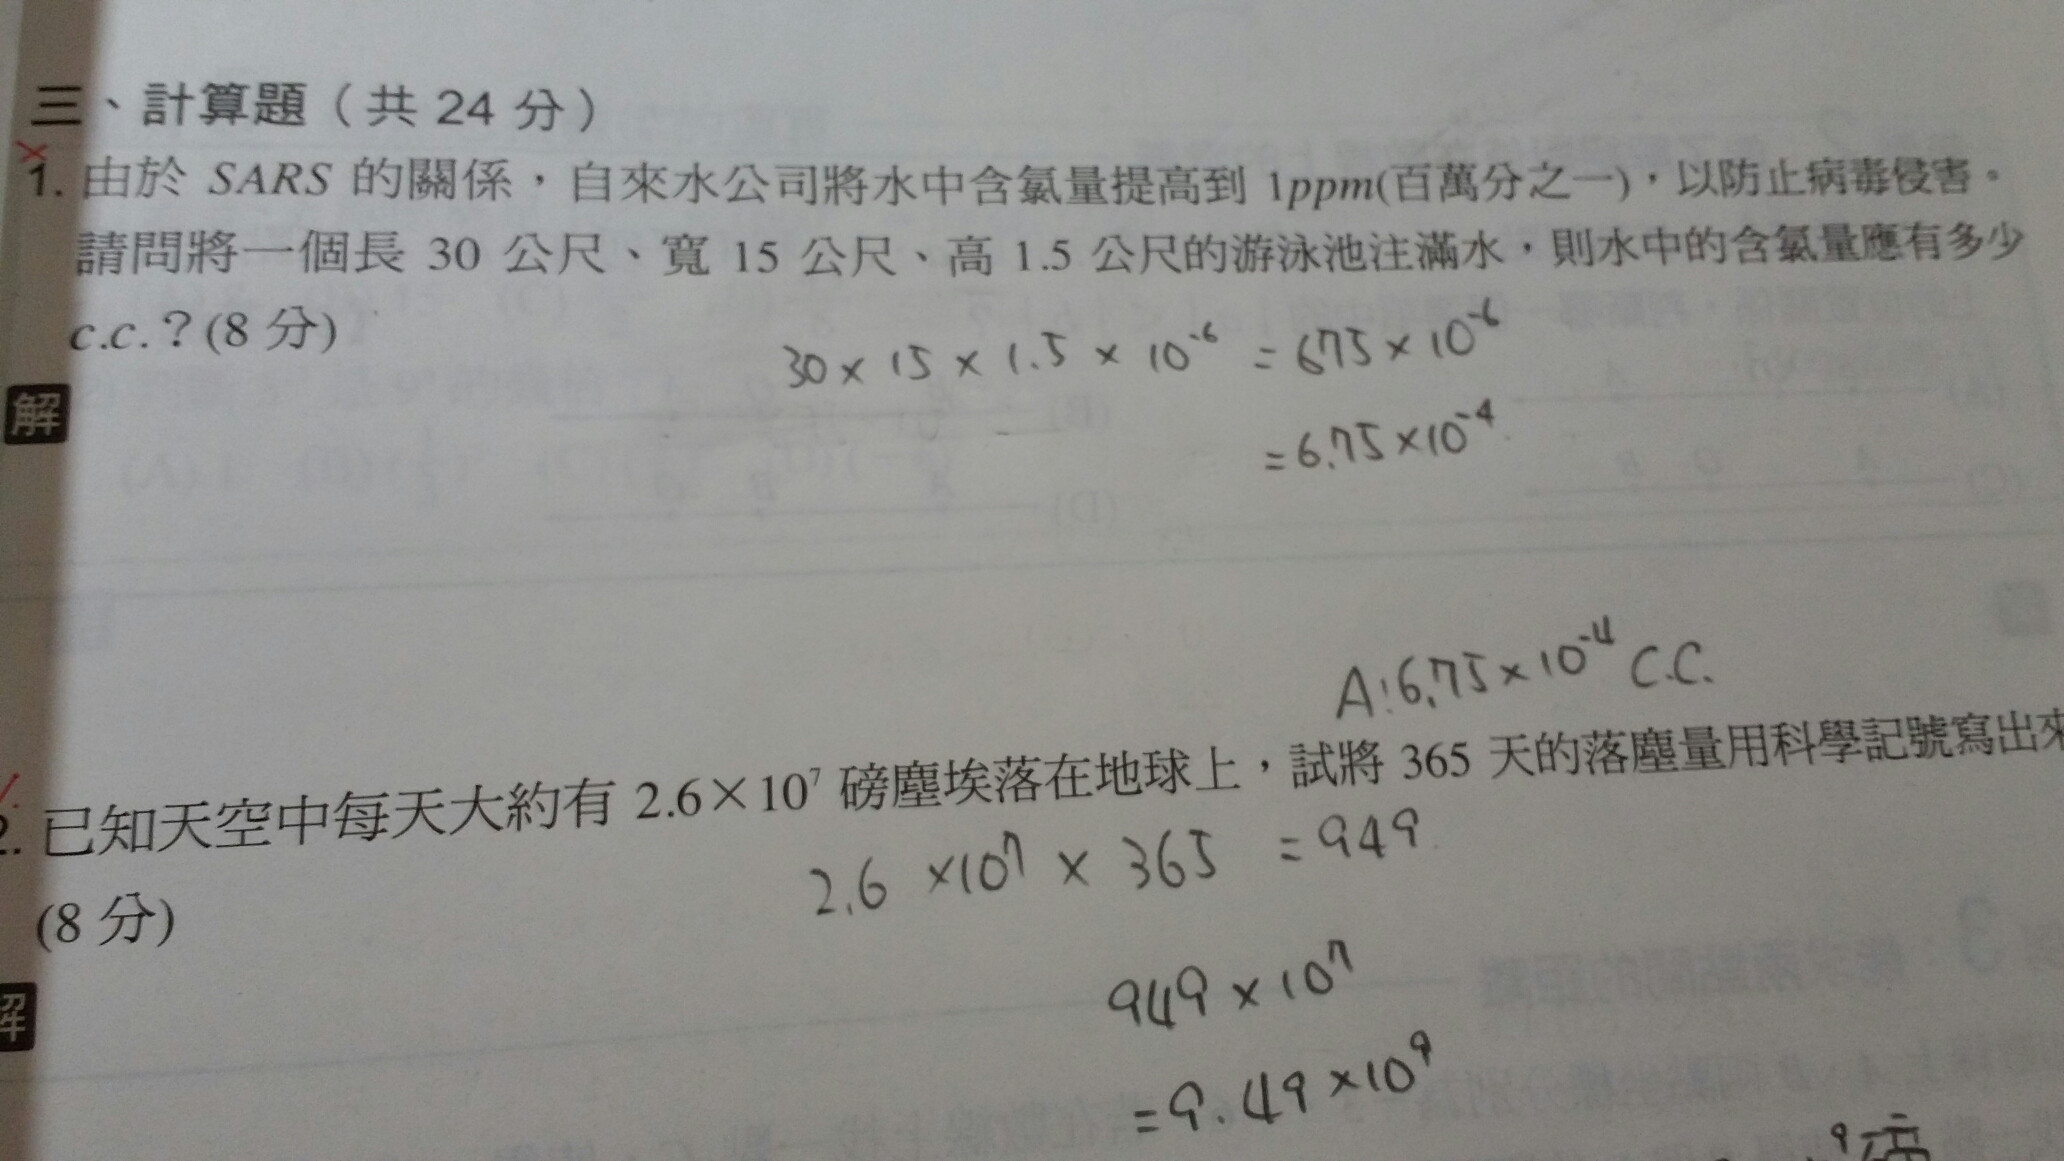 三、計算題（共 24 分）
1. 由於 SARS 的關係，自來水公司將水中含氯量提高到 1ppm(百萬分之一)，以防止病毒侵害。
請問將一個長 30 公尺、寬 15 公尺、高 1.5 公尺的游泳池注滿水，則水中的含氯量應有多少
c.c.？(8 分)
30 × 15 × 1.5 × 10⁻⁶ = 675 × 10⁻⁶
解
= 6.75 × 10⁻⁴
A: 6.75 × 10⁻⁴ C.C.
2. 已知天空中每天大約有 2.6×10⁷ 磅塵埃落在地球上，試將 365 天的落塵量用科學記號寫出來
2.6 ×10⁷ × 365 = 949
(8 分)
949 × 10⁷
解
= 9.49 ×10⁹